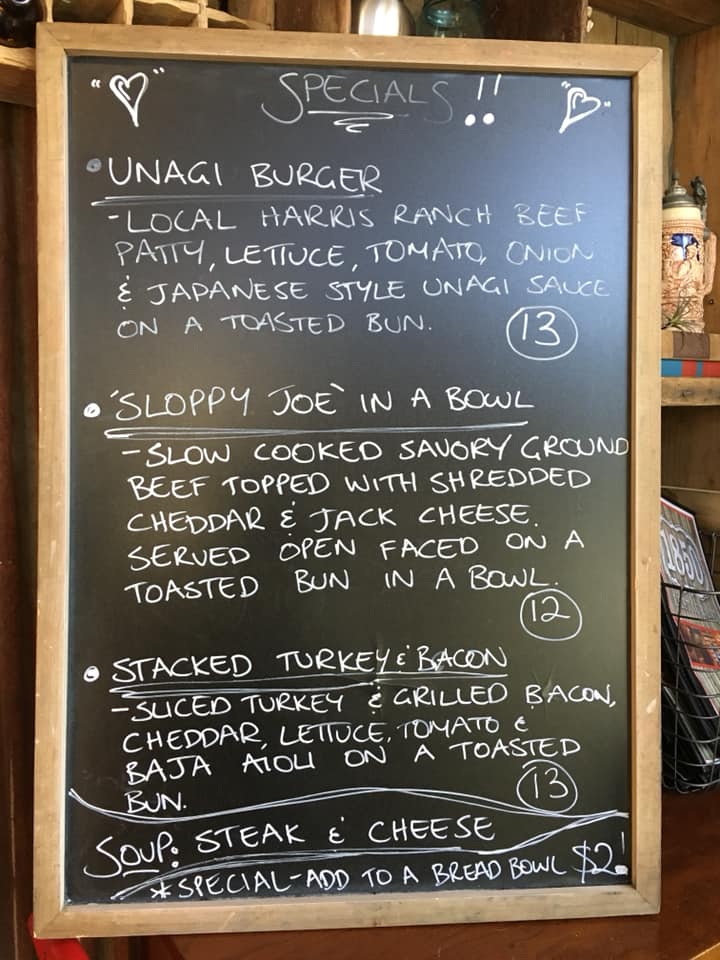 SPECIALS!!
• UNAGI BURGER
- LOCAL HARRIS RANCH BEEF
PATTY, LETTUCE, TOMATO, ONION
& JAPANESE STYLE UNAGI SAUCE
ON A TOASTED BUN. 13
• 'SLOPPY JOE' IN A BOWL
- SLOW COOKED SAVORY GROUND
BEEF TOPPED WITH SHREDDED
CHEDDAR & JACK CHEESE.
SERVED OPEN FACED ON A
TOASTED BUN IN A BOWL.
12
• STACKED TURKEY & BACON
- SLICED TURKEY & GRILLED BACON,
CHEDDAR, LETTUCE, TOMATO &
BAJA AIOLI ON A TOASTED
BUN. 13
SOUP: STEAK & CHEESE
*SPECIAL - ADD TO A BREAD BOWL $2!
1850